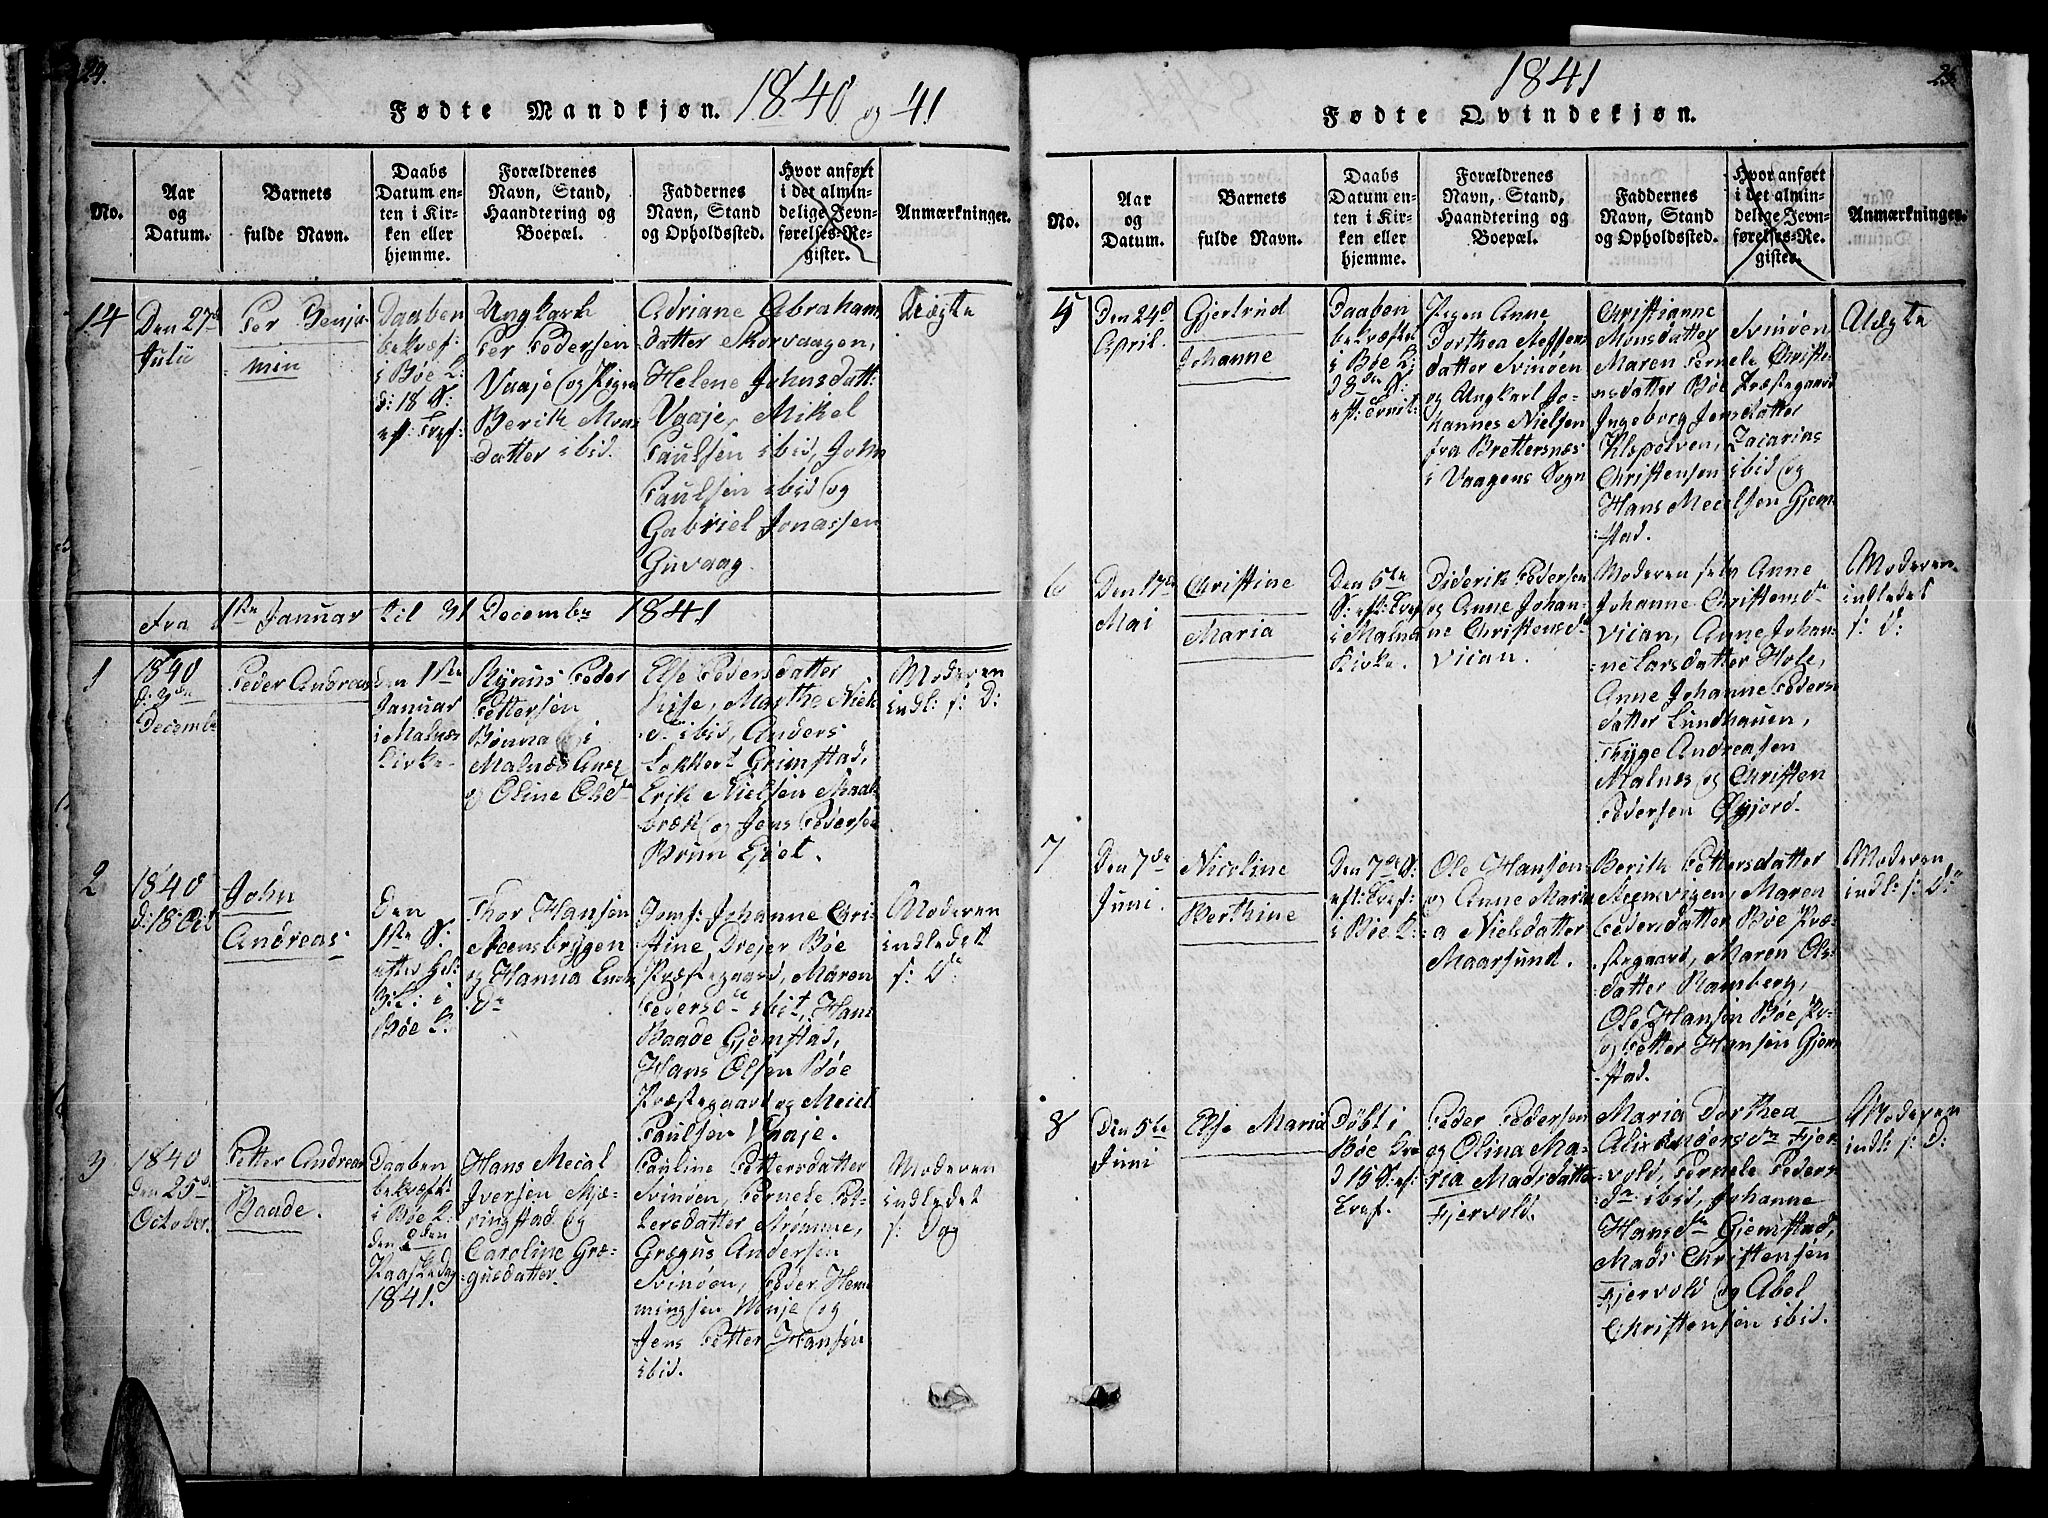 24.
Fødte Mandkjøn. 1840 og 41
No.
Aar
og
Datum.
Barnets
fulde Navn.
Daabs
Datum en-
ten i Kir-
ken eller
hjemme.
Forældrenes
Navn, Stand,
Haandtering og
Boepæl.
Faddernes
Navn, Stand
og Opholdssted.
Hvor anført
i det almin-
delige Jevn-
førelses-Re-
gister.
Anmærkninger.
14
Den 27de
Julii
Per Benja
min
Daaben
bekræf:
i Bøe K:
d: 18 S:
ef: Tref:
Ungkarl
Per Pedersen
Vaaje og Pigen
Berith Mons
datter ibid.
Adriane Abrahams
datter Skorvaagen,
Helene Johnsdatt:
Vaaje, Mikel
Paulsen ibid, John
Paulsen ibid og
Gabriel Jonassen
Guvaag.
Uægte
Fra 1ste Januar til 31 December 1841
1
1840
d: 3de
Decembr
Peder Andreas
den 1ste
Januar
i Malnæs
Kirke
Rynus Peder
Pettersen
Bønna i
Malnæs
og Oline Olsdr
Else Pedersdatter
Hise, Marthe Niels
d: ibid, Anders
Lokkert Grimstad,
Erik Nielsen Maal
bræk og Jens Pedersen
Brun Ejdet.
Moderen
indl: s: D:
2
1840
d: 18 Oct
John
Andreas
Den
1ste S:
efter Hel:
3 K: i
Bøe K:
Thor Hansen
Steensbrygen
og Hanna
dr
Jomf: Johanne Chri-
stine Drejer Bøe
Præstegaard, Maren
Pedersdr ibit, Hans
Baade Gjemstad,
Hans Olsen Bøe
Præstegaard og Meiel
Paulsen Vaaje.
Moderen
indledet
s: D:
3
1840
den 25de
October.
Petter Andreas
Baade.
Daaben
bekræft:
i Bøe K:
den 2den
Paaskedag
1841.
Hans Mecal
Iversen Skjæ-
ringstad og
Caroline Græ-
gusdatter.
Pauline Pettersdatter
Svinøen, Pernele Pet-
tersdatter Strømme,
Grægus Andersen
Svinøen, Peder Hem
mingsen Vaaje og
Jens Petter Hansen
ibid.
Moderen
indledet
s: Dag
25.
1841
Fødte Qvindekjøn.
No.
Aar
og
Datum.
Barnets
fulde Navn.
Daabs
Datum en-
ten i Kir-
ken eller
hjemme.
Forældrenes
Navn, Stand,
Haandtering og
Boepæl.
Faddernes
Navn, Stand
og Opholdssted.
Hvor anført
i det almin-
delige Jevn-
førelses-Re-
gister.
Anmærkninger.
5
Den 24d
April.
Gjertrud
Johanne
Daaben
bekræftet
i Bøe K:
d 8de S:
eft: Trnit:
Pigen Anne
Dorthea Steffens
datter Svinøen
og Ungkarl Jo-
hannes Nielsen
fra Brettersnæs
i Vaagens Sogn
Christianne Svinøen
Monsdatter
Maren Pernele Christe-
nsdatter Bøe Præstegaard
Ingeborg Jensdatter
Klepolven, Zacarias
Christensen ibid og
Hans Mecelsen Gjem-
stad.
Uægte
6
Den 17de
Mai
Christine
Maria
Den 5te
S: eft: Tref
i Malnæs
Kirke.
Diderik Pedersen
og Anne Johan-
ne Christensdr
Vician.
Moderen selv Anne
Johanne Christensdr
Vician, Anne Johan-
ne Larsdatter Hole,
Anne Johanne Peders
datter Lundhauen,
Thyge Andreasen
Malnes og Christen
Pedersen Øgjord.
Moderen
indledet
s: D:
7
Den 7de
Juni
Nicoline
Berthine
Den 7de S:
eft: Tref:
i Bøe K:
Ole Hansen
og Anne Mari-
a Nielsdatter
Maarsund.
Berith Pettersdatter
Steensvigen, Maren
Pedersdatter Bøe Præ-
stegaard, Maren Ols
datter Ramberg,
Ole Hansen Bøe Pr
og Petter Hansen Gjem
stad.
Moderen
indl: s: D:
8
Den 5te
Juni
Else Maria
Døbt i
Bøe
d 15 S: ef:
Tref.
Peder Pedersen
og Olina Ma-
ria Madsdatter
Fjervold.
Maria Dorthea
Fjer-
vold, Pernele Peders
dr ibid, Johanne
Hansdr Gjemstad,
Mads Christensen
Fjervold og Abel
Christensen ibid.
Moderen
indl: s: D: